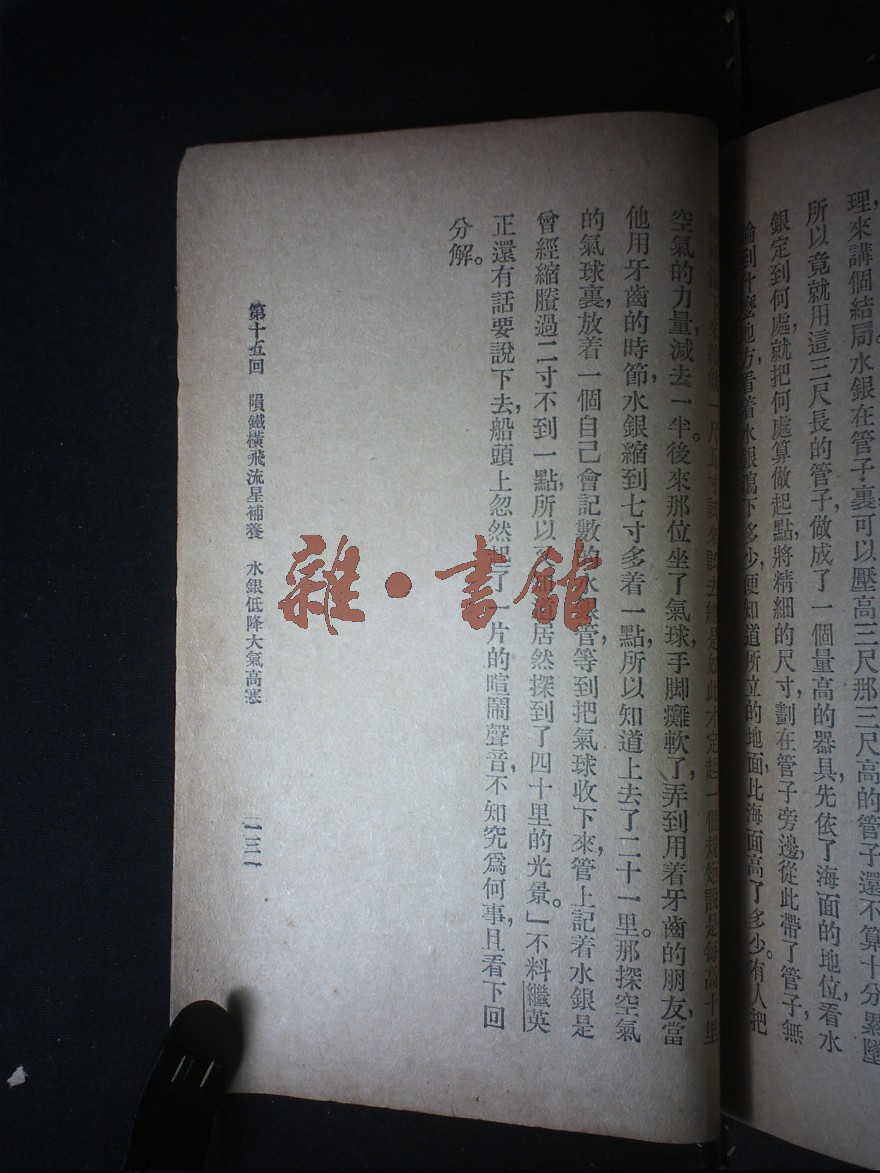 理，來講個結局。水銀在管子裏可以壓高三尺那三尺高的管子還不算十分累墜
所以竟就用這三尺長的管子，做成了一個量高的器具，先依了海面的地位，看水
銀定到何處，就把何處算做起點，將精細的尺寸，劃在管子旁邊，從此帶了管子，無
論到什麼地方，看着水銀瀉下多少，便知道所立的地面，比海面高了多少。有人把
下來 一尺五寸，試來試去，總是如此，才定起一個規矩，說是每高十里
空氣的力量，減去一半。後來那位坐了氣球，手脚癱軟了，弄到用着牙齒的朋友，當
他用牙齒的時節，水銀縮到七寸多着一點，所以知道上去了二十一里。那探空氣
的氣球裏，放着一個自己會記數的水銀管，等到把氣球收下來，管上記着水銀是
曾經縮賸過二寸不到一點，所以 居然探到了四十里的光景。」不料繼英
正還有話要說下去，船頭上忽然起了一片的喧鬧聲音，不知究爲何事，且看下回
分解。
第十五回　隕鐵橫飛流星補養　水銀低降大氣高塞
一三一
雜·書館